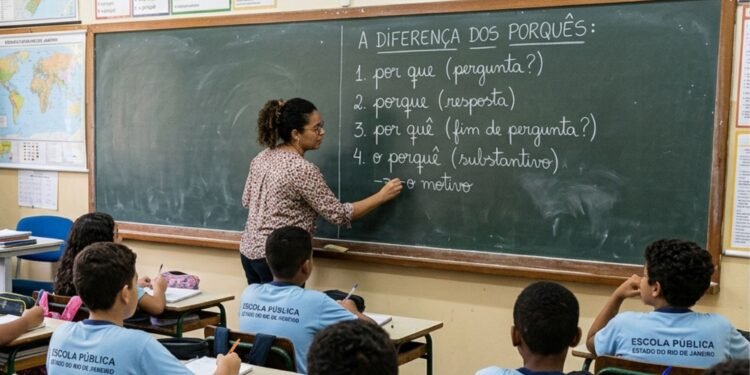 A DIFERENÇA DOS PORQUÊS:
1. por que (pergunta?)
2. porque (resposta)
3. por quê (fim de pergunta?)
4. o porquê (substantivo)
→ o motivo
ESCOLA PÚBLICA
ESTADO DO RIO DE JANEIRO
ESCOLA PÚBLICA
ESTADO DO RIO DE JANEIRO
ESCOLA PÚBLICA
ESTADO DO RIO DE JANEIRO